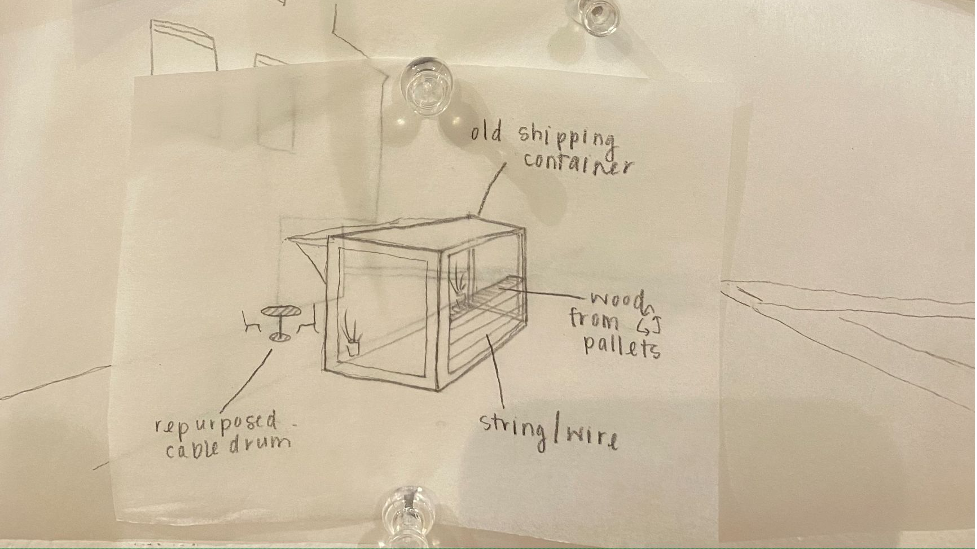 old shipping
container
wood
from
pallets
string/wire
repurposed
cable drum